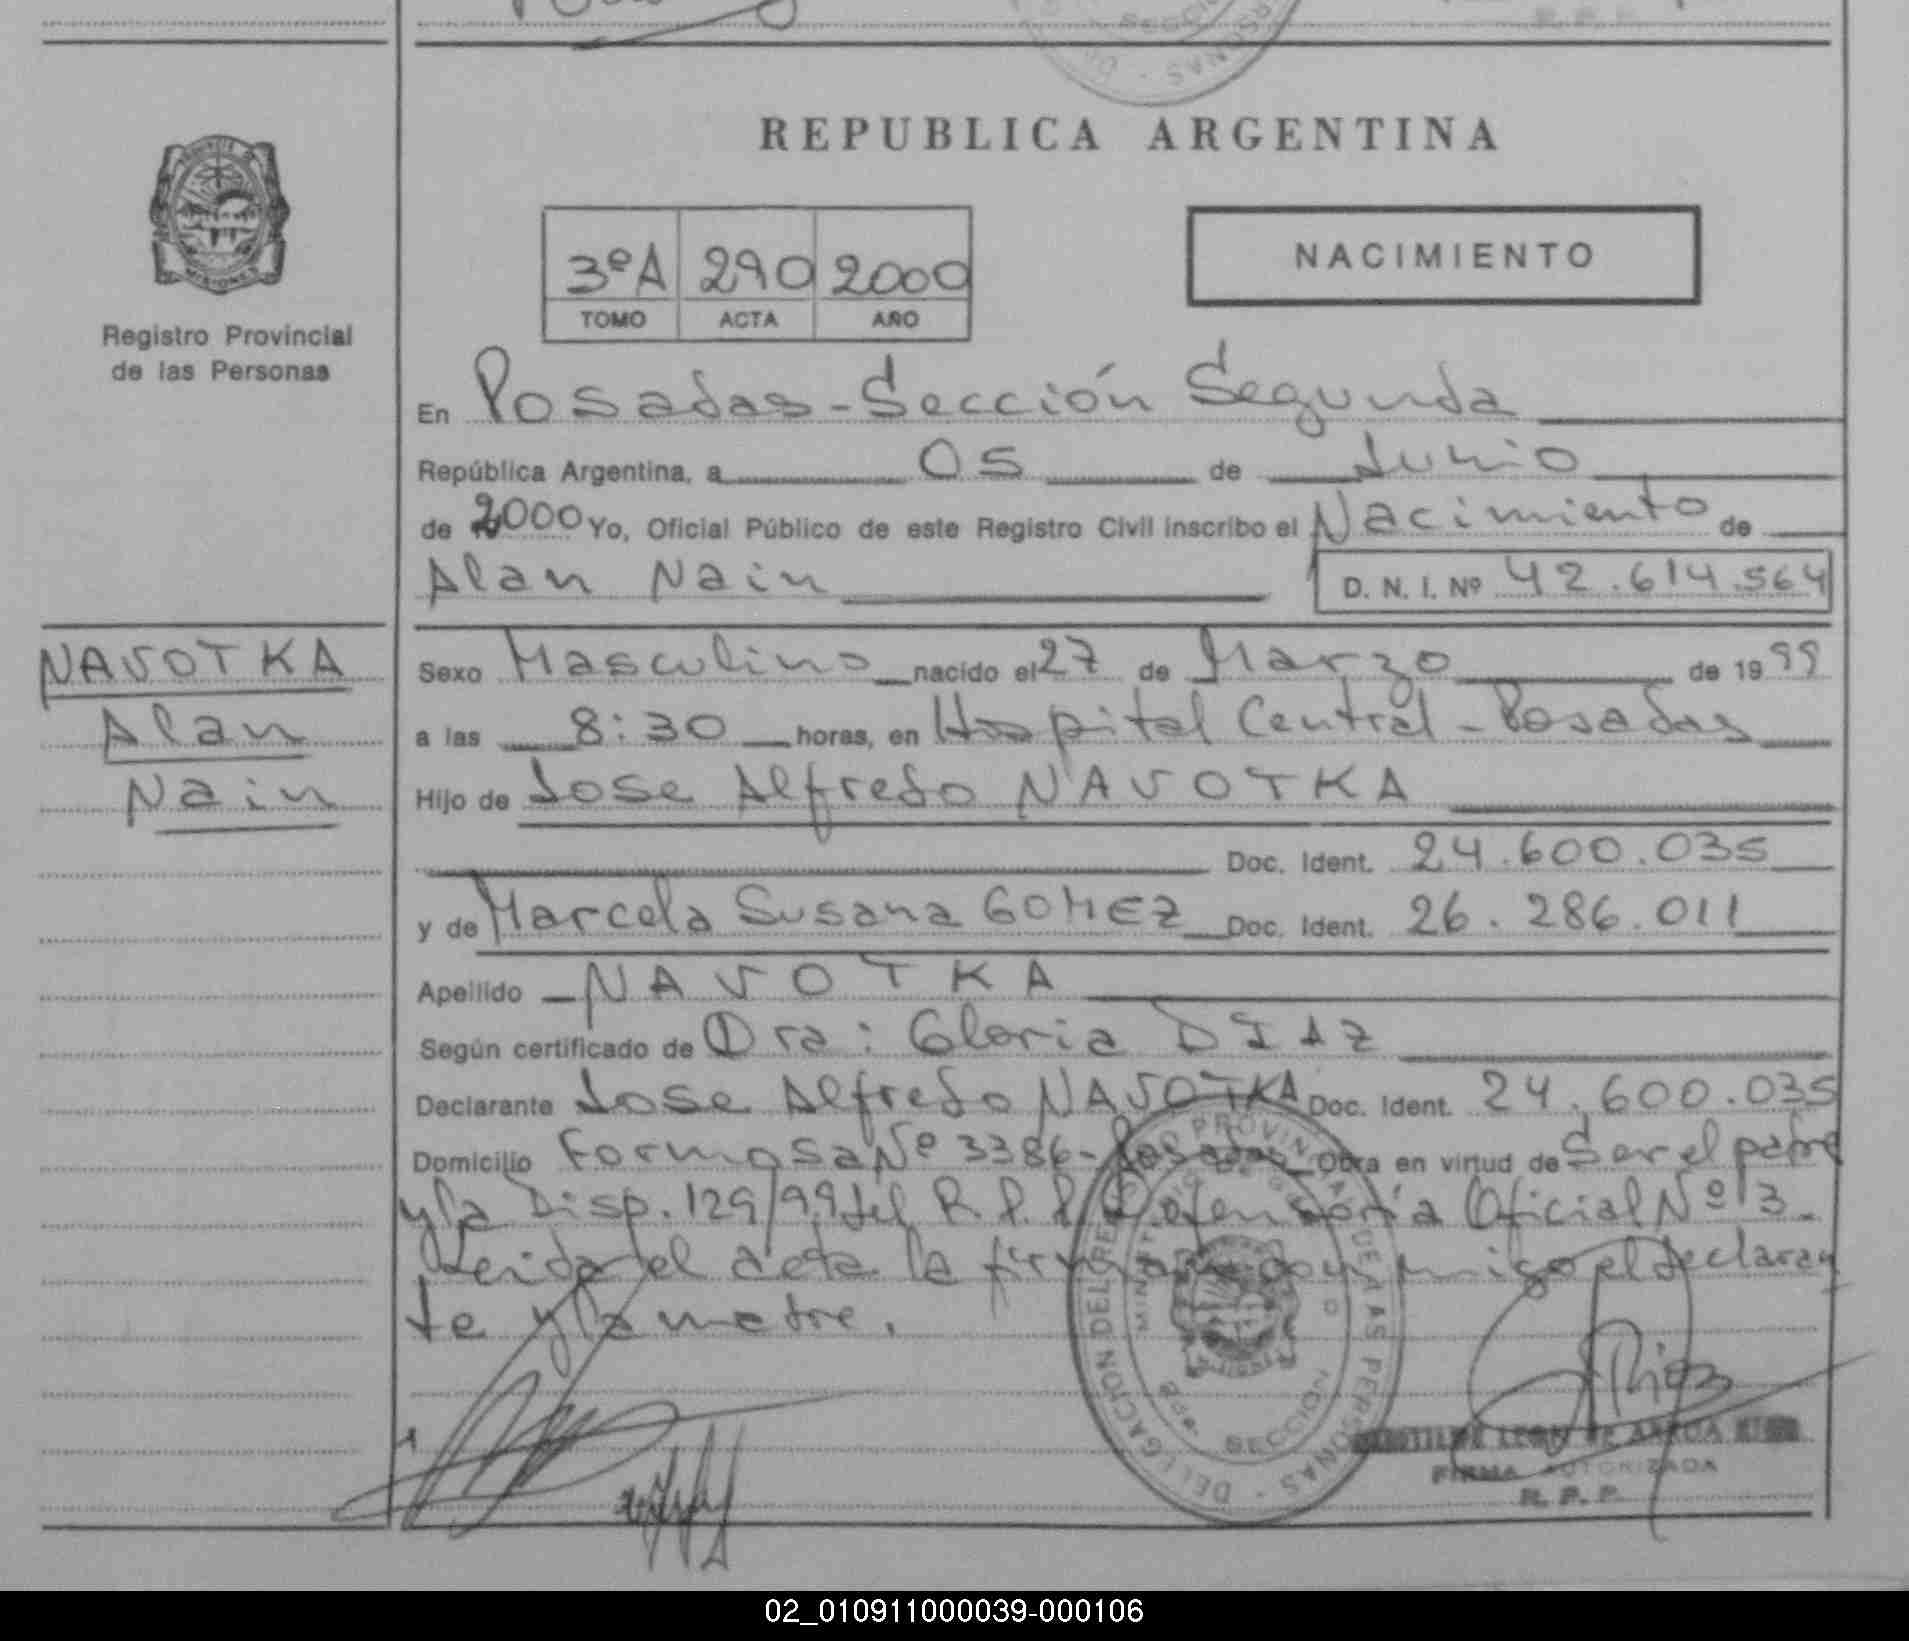 REPUBLICA ARGENTINA
3ºA 290 2000
TOMO ACTA AÑO
NACIMIENTO
Registro Provincial
de las Personas
En Posadas - Sección Segunda
República Argentina, a 05 de Junio
de 2000 Yo, Oficial Público de este Registro Civil inscribo el Nacimiento de
Alan Nain D. N. I. Nº 42.614.564
NAVOTKA
Alan
Nain
Sexo Masculino nacido el 27 de Marzo de 1999
a las 8:30 horas, en Hospital Central - Posadas
Hijo de Jose Alfredo NAVOTKA
Doc. Ident. 24.600.035
y de Marcela Susana GOMEZ Doc. Ident. 26.286.011
Apellido NAVOTKA
Según certificado de Dra: Gloria DIAZ
Declarante Jose Alfredo NAVOTKA Doc. Ident. 24.600.035
Domicilio Formosa Nº 3386 - Posadas Obra en virtud de Ser el padre
y la Disp. 129/99 del R.P.P. Defensoría Oficial Nº 3.
Leida el acta la firman conmigo el declaran
te y la madre.
DELEGACION DEL REGISTRO PROVINCIAL DE LAS PERSONAS
MINISTERIO DE GOBIERNO
2da. SECCION
MISIONES
FIRMA AUTORIZADA
R. P. P.
02_010911000039-000106